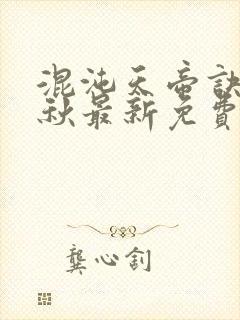 混沌天帝訣
秋最新免費
龔心釗